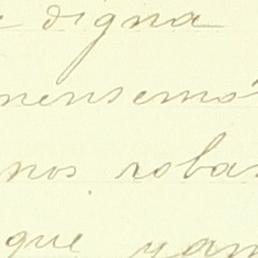 e digna
nensemo
nos roba
que yam